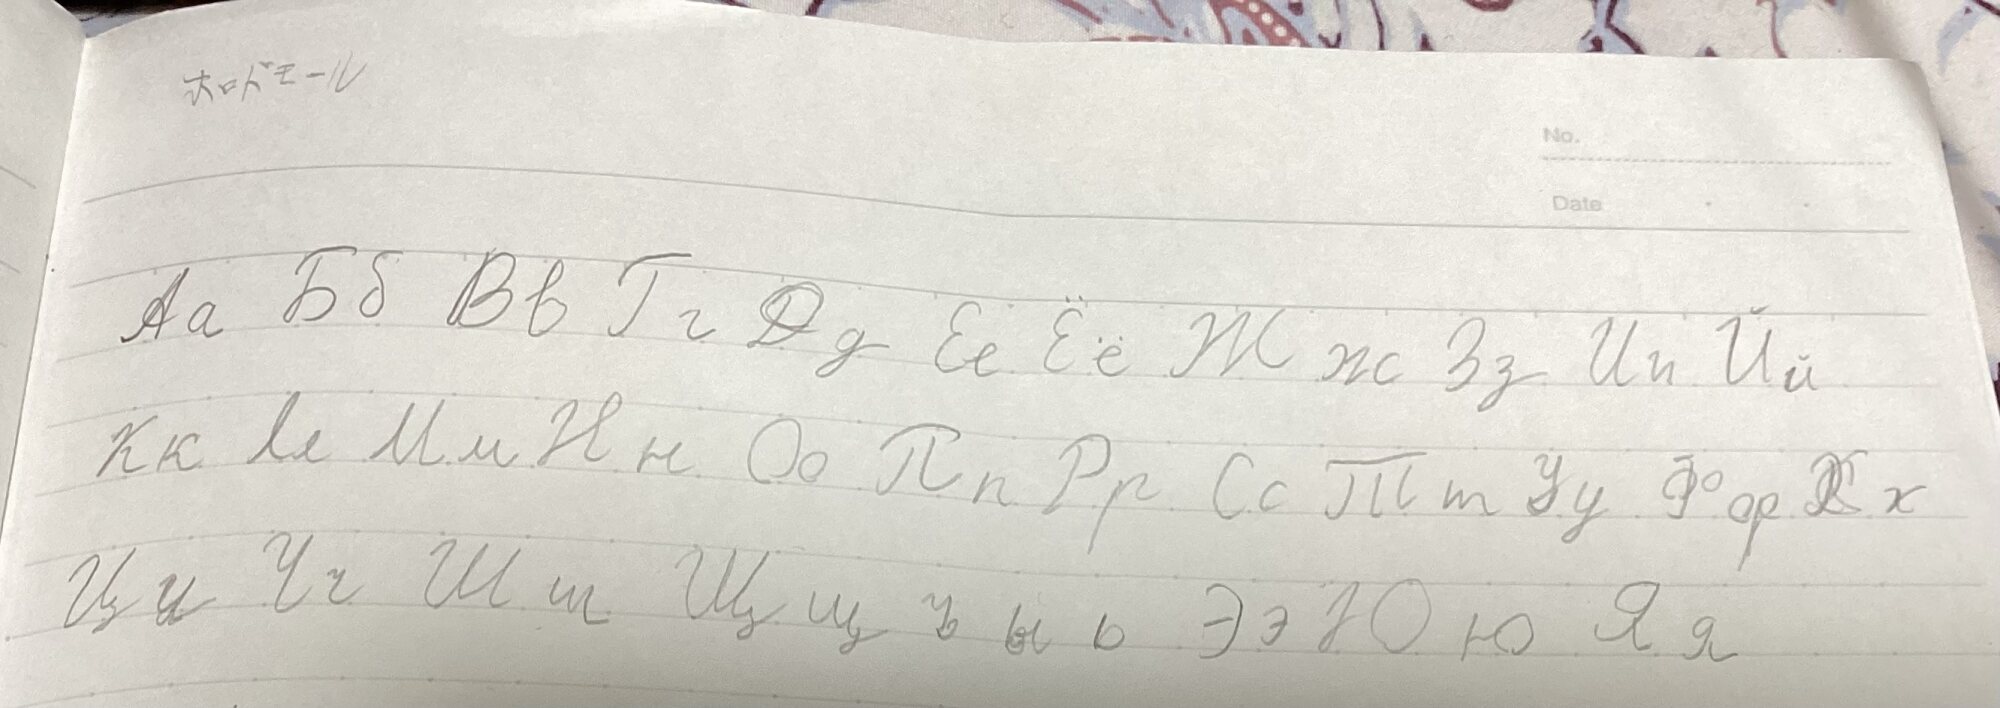 ホロドモール
No.
Date
Аа Бб Вв Гг Дд Ее Ёё Жж Зз Ии Йй
Кк Лл Мм Нн Оо Пп Рр Сс Тт Уу Фф Хх
Цц Чч Шш Щщ ъ ы ь Ээ Юю Яя